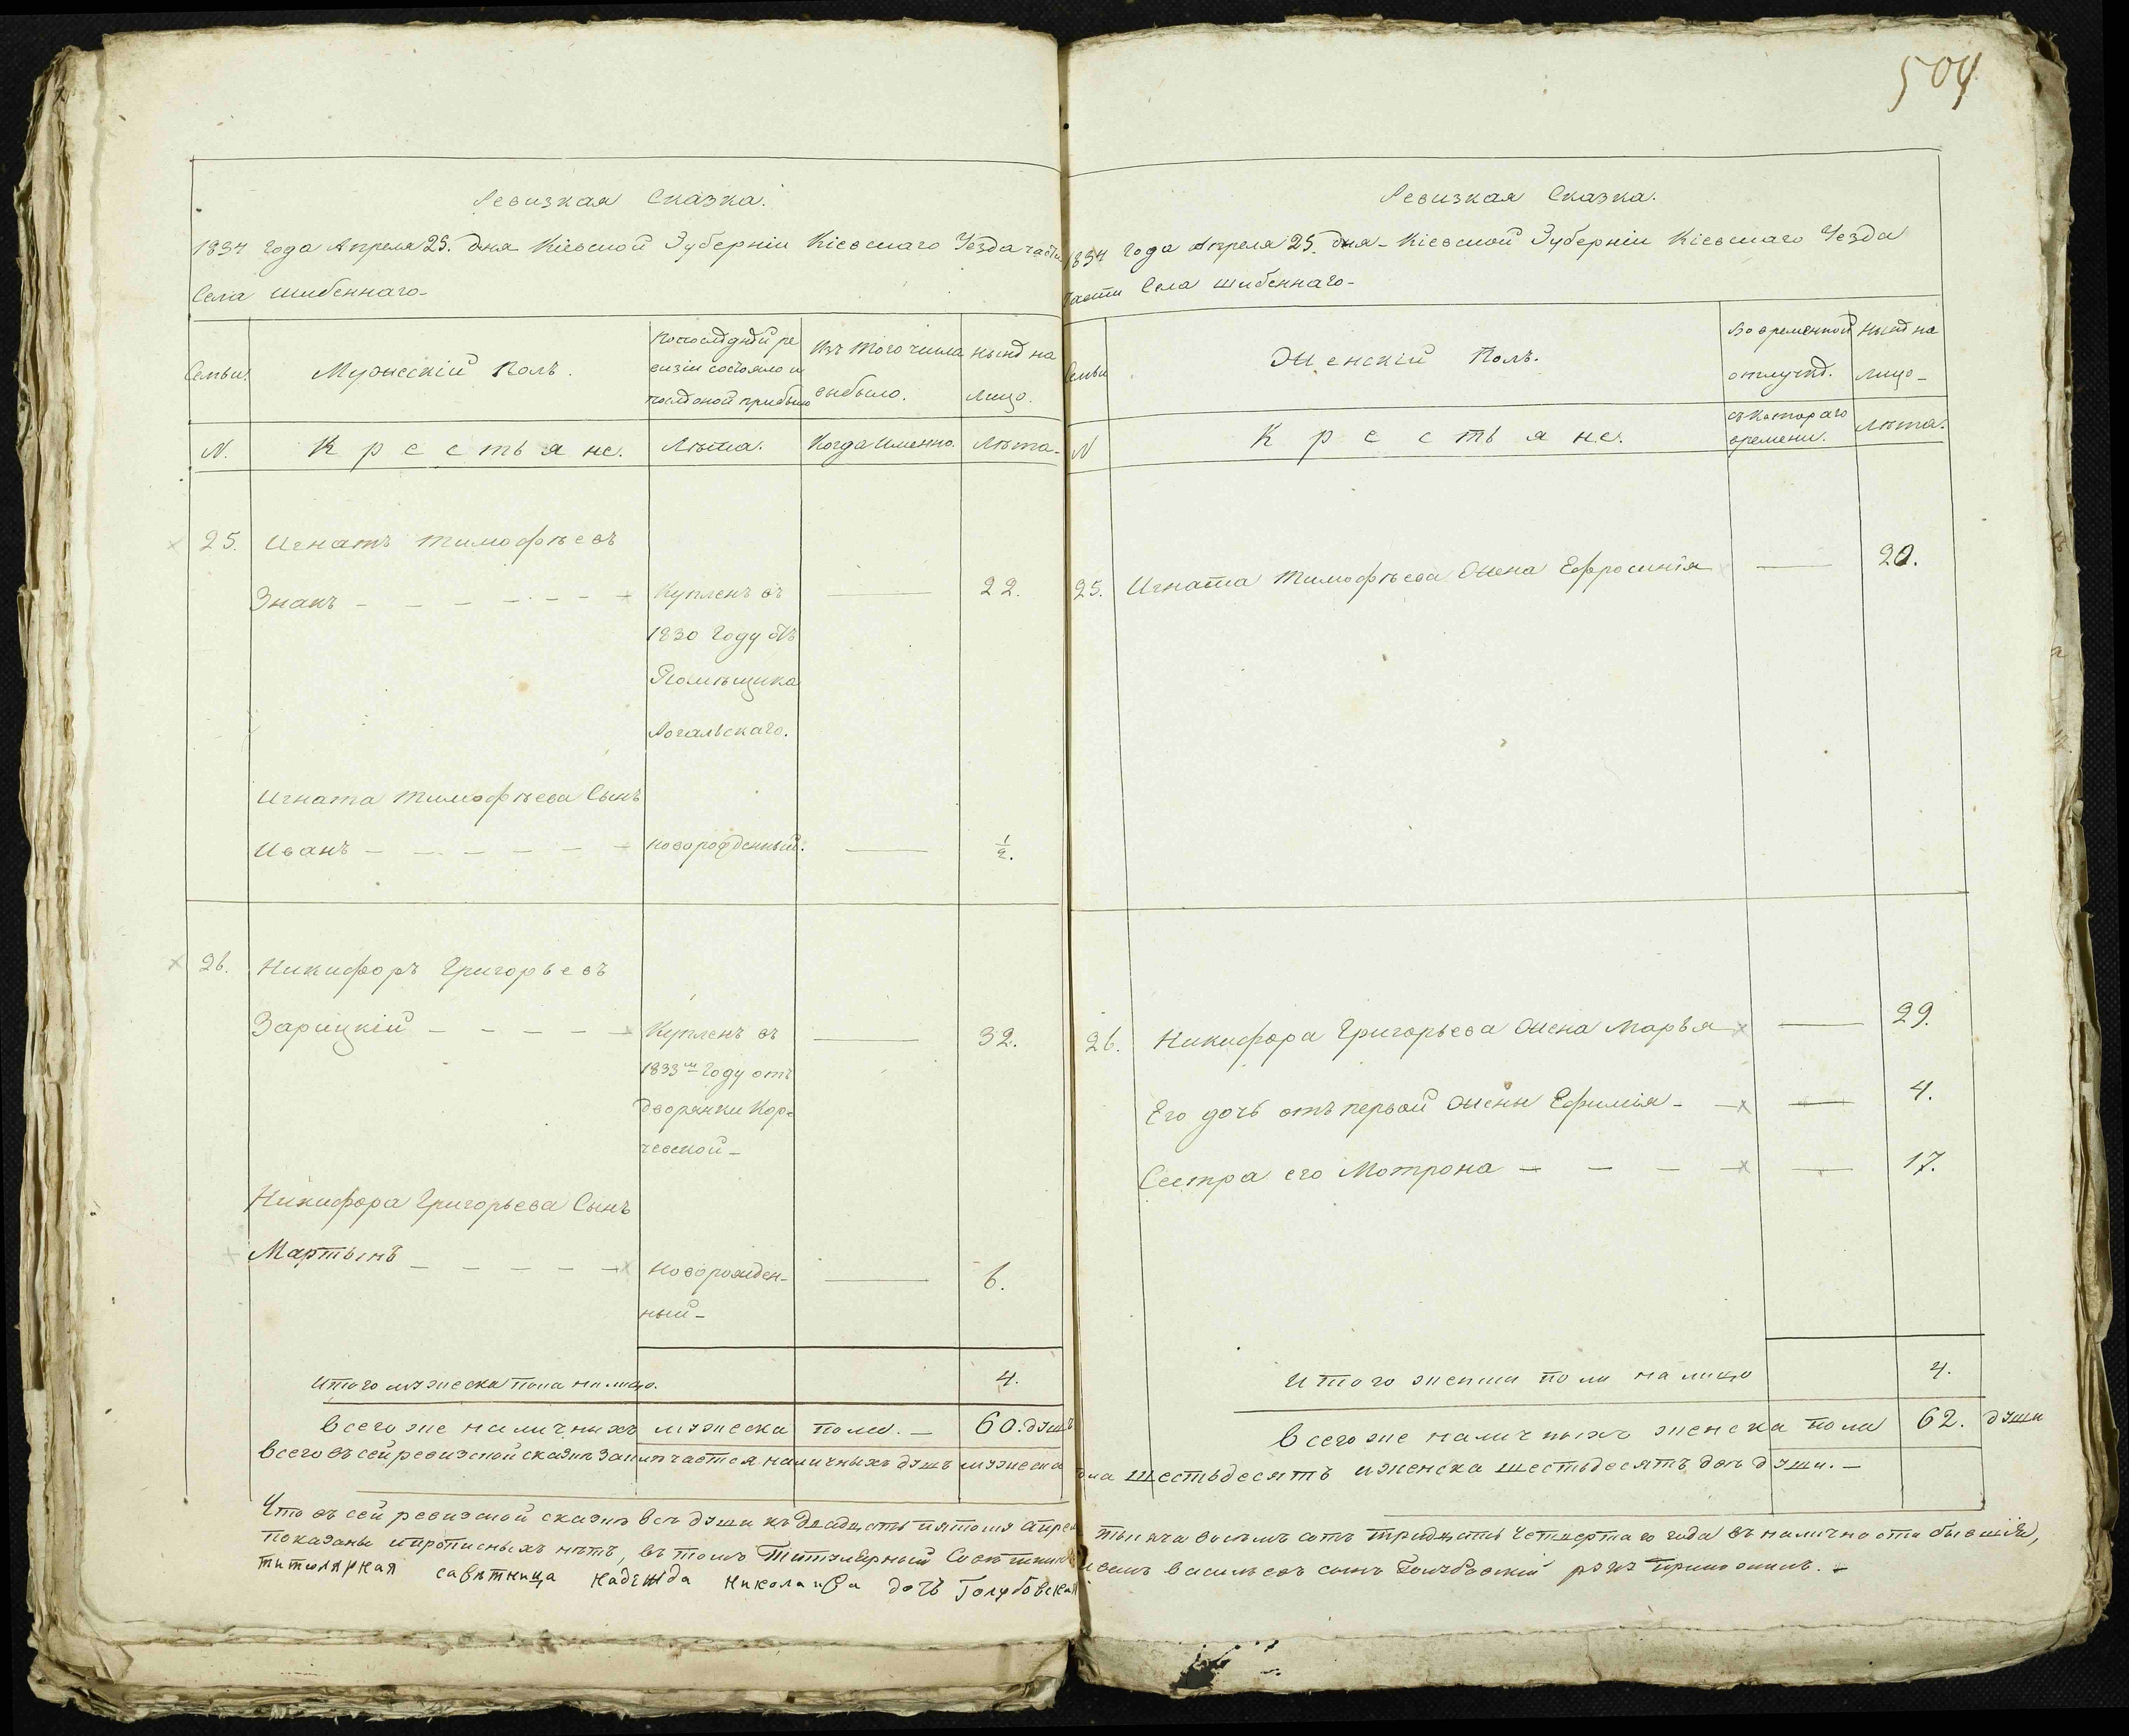 504
Ревизкая Сказка.
1834 года Апреля 25. дня Кіевской Губерніи Кіевскаго Уезда части
Села Шибеннаго
Семьи.
Мужескій Полъ.
По последней ре
визіи состояло и
после оной прибыло
Изъ того числа
выбыло.
Ныне на
лицо.
N.
Крестьяне.
Лѣта.
Когда именно.
Лѣта
25. Игнатъ Тимофѣевъ
Знакъ
Купленъ въ
22.
1830 году отъ
Помѣщика
Игната Тимофѣева Сынъ
Иванъ
новорожденный.
1/2.
26. Никифоръ Григорьевъ
Зарицкій
Купленъ въ
32.
1833м году отъ
дворянки Кор-
чевской
Никифора Григорьева Сынъ
Мартынъ
новорожден-
6.
ный
Итого мужеска пола на лицо. 4.
Всего же наличныхъ мужеска пола. 60. душъ
Всего въ сей ревизской сказкѣ заключается наличныхъ душъ мужеска
Что въ сей ревизской сказкѣ всѣ души къ двадцать пятому апреля
показаны и прописныхъ нѣтъ, въ томъ Титулярный Совѣтникъ
титулярная савѣтница Надежда Николаива дочь Голубовская
Ревизкая Сказка.
1834 года Апреля 25. дня Кіевской Губерніи Кіевскаго Уезда
части Села Шибеннаго
Семьи
Женскій Полъ.
Во временной
отлучке.
Ныне на
лицо
N
Крестьяне.
съ котораго
времени.
Лѣта.
25. Игната Тимофѣева жена Ефросинія 20.
26. Никифора Григорьева жена Марья 29.
Его дочь отъ первой жены Ефимія 4.
Сестра его Мотрона 17.
Итого женска пола на лицо 4.
Всего же наличныхъ женска пола 62. души
пола шестьдесятъ и женска шестьдесятъ двѣ души.
тысяча восемь сотъ тридцать четвертаго года въ наличности бывшія,
Васильевъ сынъ Голубовскій руку приложилъ.